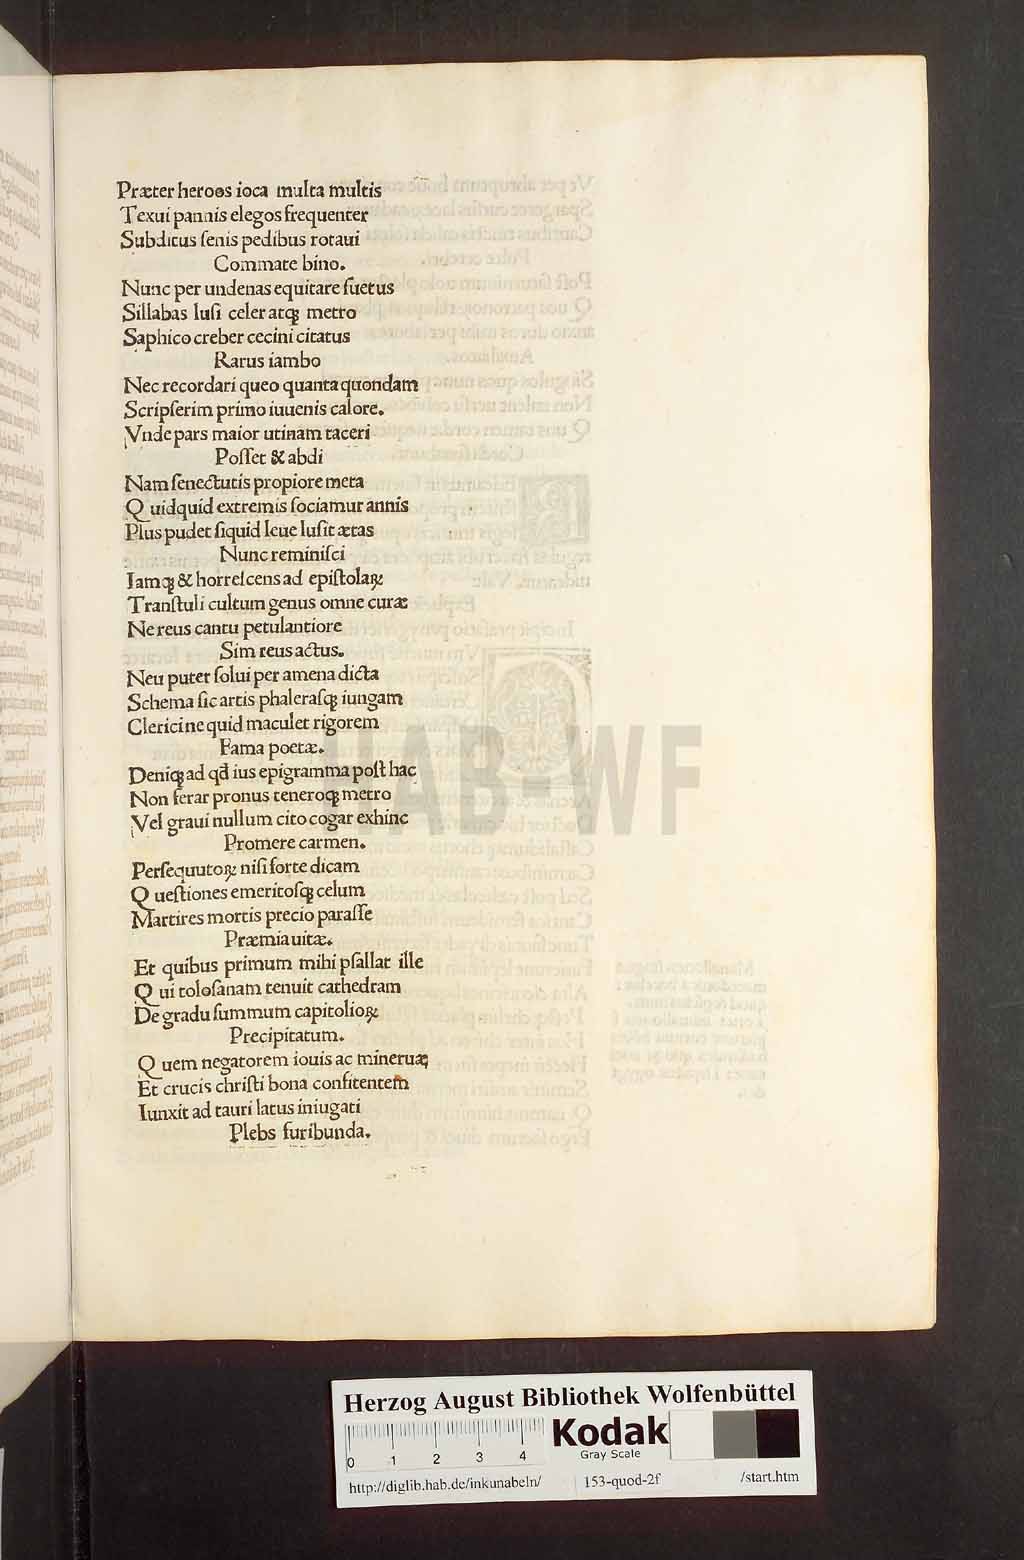 Præter heroos ioca multa multis
Texui pannis elegos frequenter
Subditus ſenis pedibus rotaui
Commate bino.
Nunc per undenas equitare ſuetus
Sillabas luſi celer atqꝫ metro
Saphico creber cecini citatus
Rarus iambo
Nec recordari queo quanta quondam
Scripſerim primo iuuenis calore.
Vnde pars maior utinam taceri
Poſſet & abdi
Nam ſenectutis propiore meta
Quidquid extremis ſociamur annis
Plus pudet ſiquid leue luſit ætas
Nunc reminiſci
Iamqꝫ & horreſcens ad epiſtolaꝝ
Tranſtuli cultum genus omne curæ
Ne reus cantu petulantiore
Sim reus actus.
Neu puter ſolui per amena dicta
Schema ſic artis phaleraſqꝫ iungam
Clerici ne quid maculet rigorem
Fama poetæ.
Deniqꝫ ad qđ ius epigramma poſt hac
Non ferar pronus teneroqꝫ metro
Vel graui nullum cito cogar exhinc
Promere carmen.
Perſequutoꝝ niſi forte dicam
Queſtiones emeritoſqꝫ celum
Martires mortis precio paraſſe
Præmia uitæ.
Et quibus primum mihi pſallat ille
Qui toloſanam tenuit cathedram
De gradu ſummum capitolioꝝ
Precipitatum.
Quem negatorem iouis ac mineruæ
Et crucis chriſti bona confitentem
Iunxit ad tauri latus iniugati
Plebs furibunda.
HAB-WF
Herzog August Bibliothek Wolfenbüttel
0 1 2 3 4
Kodak
Gray Scale
http://diglib.hab.de/inkunabeln/ 153-quod-2f /start.htm